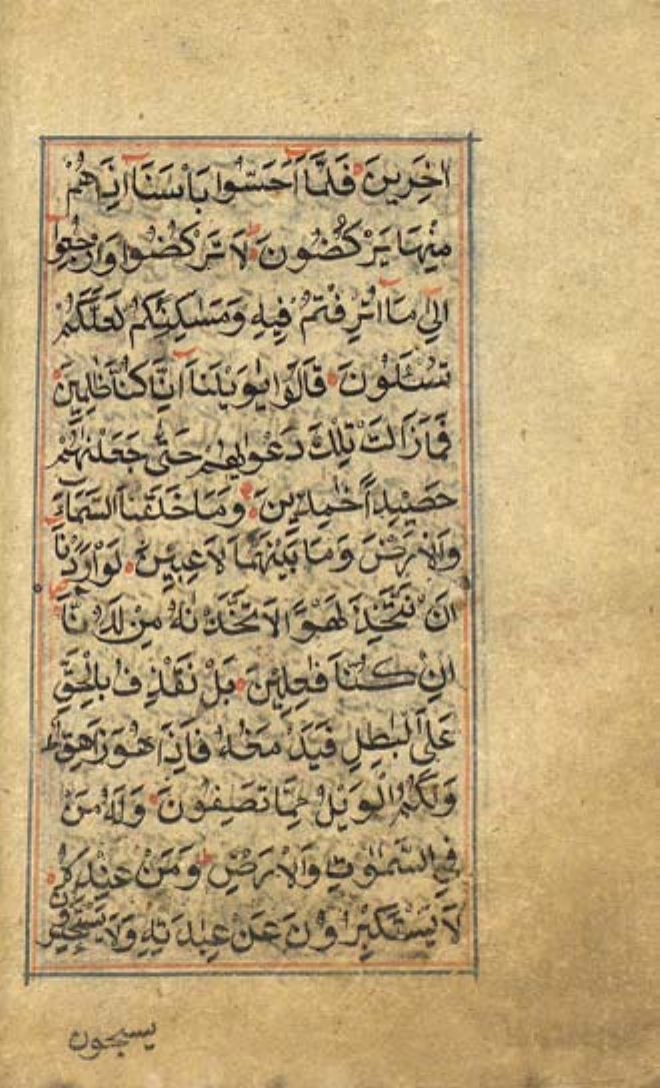 اٰخَرِيْنَ فَلَمَّآ اَحَسُّوْا بَاْسَنَآ اِذَا هُمْ
مِنْهَا يَرْكُضُوْنَ لَا تَرْكُضُوْا وَارْجِعُوْٓا
اِلٰى مَآ اُتْرِفْتُمْ فِيْهِ وَمَسٰكِنِكُمْ لَعَلَّكُمْ
تُسْـَٔلُوْنَ قَالُوْا يٰوَيْلَنَآ اِنَّا كُنَّا ظٰلِمِيْنَ
فَمَا زَالَتْ تِلْكَ دَعْوٰىهُمْ حَتّٰى جَعَلْنٰهُمْ
حَصِيْدًا خٰمِدِيْنَ وَمَا خَلَقْنَا السَّمَآءَ
وَالْاَرْضَ وَمَا بَيْنَهُمَا لٰعِبِيْنَ لَوْ اَرَدْنَآ
اَنْ نَّتَّخِذَ لَهْوًا لَّاتَّخَذْنٰهُ مِنْ لَّدُنَّآ
اِنْ كُنَّا فٰعِلِيْنَ بَلْ نَقْذِفُ بِالْحَقِّ
عَلَى الْبٰطِلِ فَيَدْمَغُهٗ فَاِذَا هُوَ زَاهِقٌ ط
وَلَكُمُ الْوَيْلُ مِمَّا تَصِفُوْنَ وَلَهٗ مَنْ
فِي السَّمٰوٰتِ وَالْاَرْضِ وَمَنْ عِنْدَهٗ
لَا يَسْتَكْبِرُوْنَ عَنْ عِبَادَتِهٖ وَلَا يَسْتَحْسِرُوْنَ
يسبحون